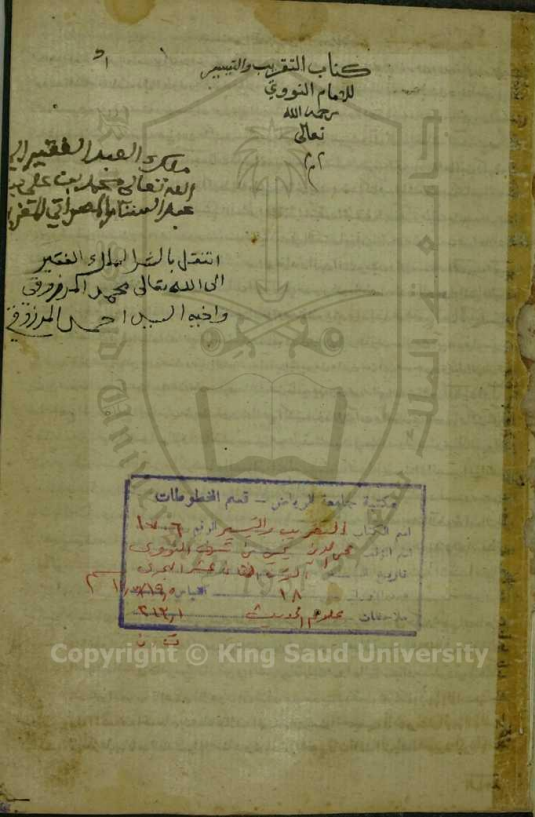 كتاب التقريب والتيسير
للامام النووي
رحمه الله
تعالى
ملك العبد الفقير الى
الله تعالى محمد بن علي
عبد
انتقل بالشرا الملك الفقير
الى الله تعالى محمد المرزوقي
واخيه السيد احمد المرزوقي
مكتبة جامعة الرياض - قسم المخطوطات
اسم الكتاب التقريب والتيسير الرقم ١٧٠٦
اسم المؤلف محي الدين يحيى بن شرف النووي
تاريخ النسخ
عدد الأوراق ١٨ القياس
ملاحظات علوم الحديث ٢١٣,١
ت . ن
Copyright © King Saud University